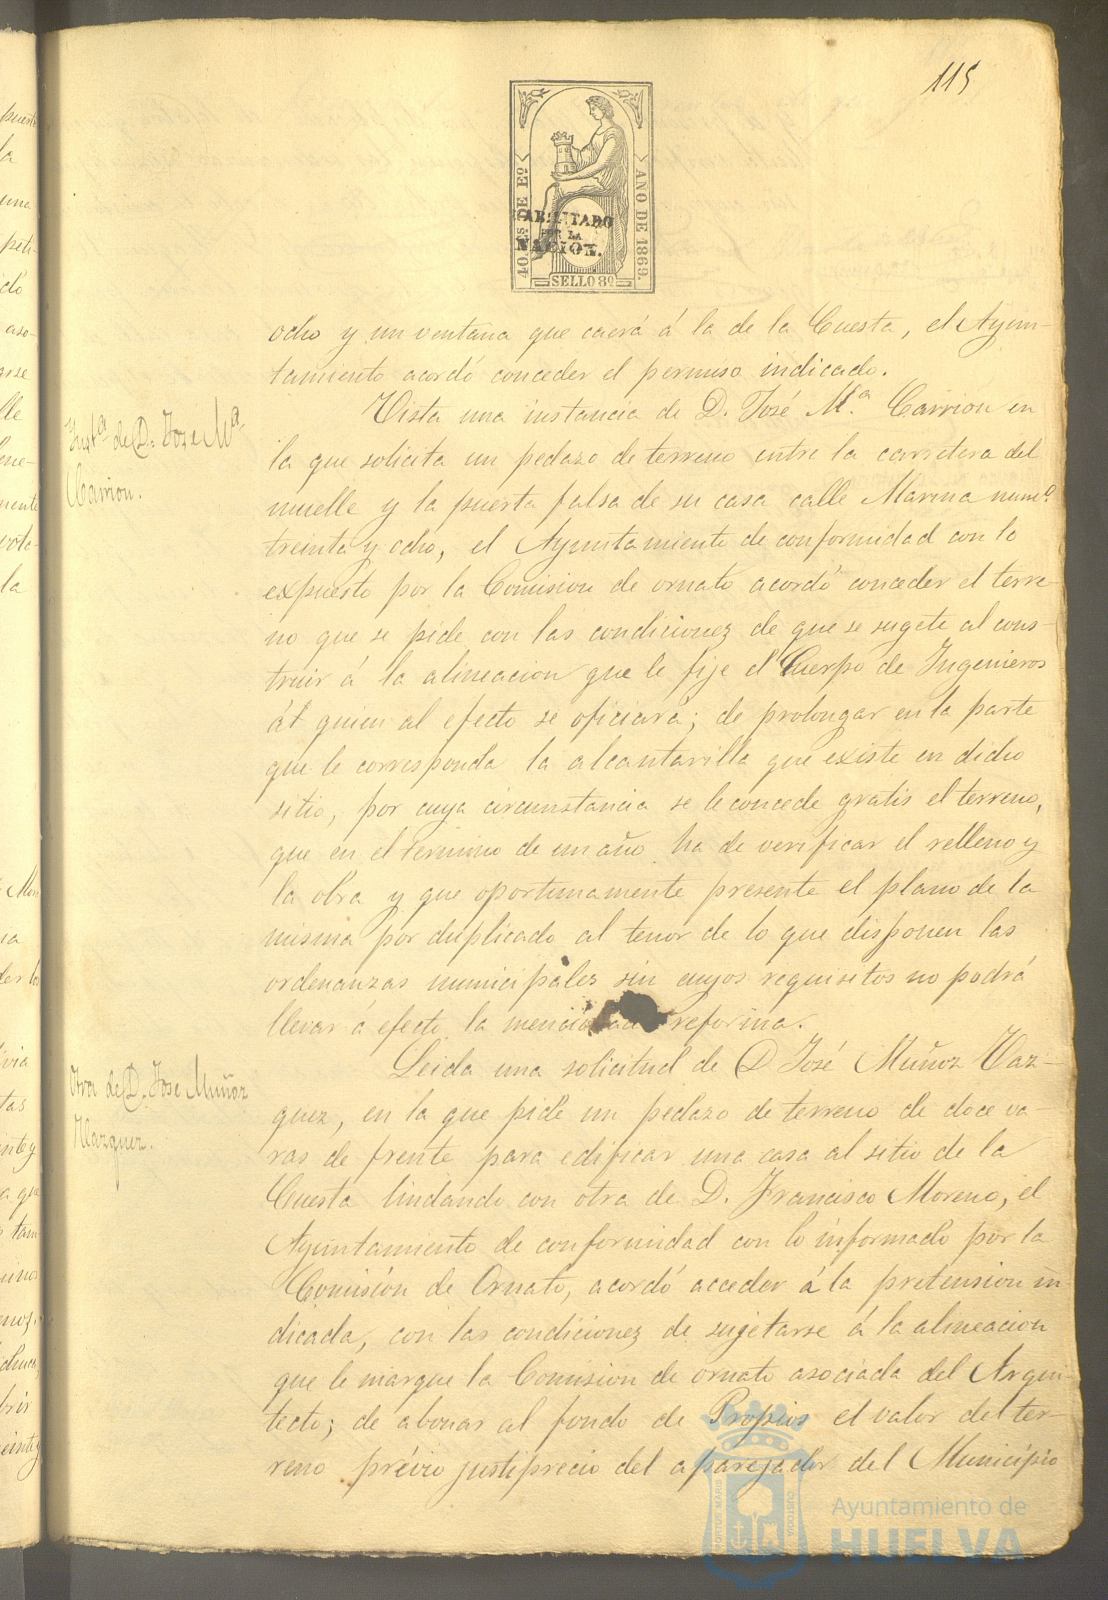 115
40. Ms. DE Eº
AÑO DE 1869.
HABILITADO
POR LA
NACION.
SELLO 8º
ocho y un ventana que caerá á la de la Cuesta, el Ayun-
tamiento acordó conceder el permiso indicado.
Instª de D. Jose Mª
Carrion.
Vista una instancia de D. José M.ª Carrion en
la que solicita un pedazo de terreno entre la carretera del
muelle y la puerta falsa de su casa calle Marina numº
treinta y ocho, el Ayuntamiento de conformidad con lo
expuesto por la Comision de ornato acordó conceder el terre-
no que se pide con las condiciones de que se sugete al cons-
truir á la alineacion que le fije el Cuerpo de Ingenieros
ál quien al efecto se oficiará; de prolongar en la parte
que le corresponda la alcantarilla que existe en dicho
sitio, por cuya circunstancia se le concede gratis el terreno,
que en el termino de un año ha de verificar el relleno y
la obra y que oportunamente presente el plano de la
misma por duplicado al tenor de lo que disponen las
ordenanzas municipales sin cuyos requisitos no podrá
llevar á efecto la mencionada reforma.
Otra de D. Jose Muñoz
Vazquez.
Leida una solicitud de D José Muñoz Vaz-
quez, en la que pide un pedazo de terreno de doce va-
ras de frente para edificar una casa al sitio de la
Cuesta lindando con otra de D. Francisco Moreno, el
Ayuntamiento de conformidad con lo informado por la
Comisión de Ornato, acordó acceder á la pretension in-
dicada, con las condiciones de sugetarse á la alineacion
que le marque la Comision de ornato asociada del Arqui-
tecto; de abonar al fondo de Propios el valor del ter-
reno prévio justiprecio del aparejador del Municipio
PORTUS MARIS
CUSTODIA
Ayuntamiento de
HUELVA